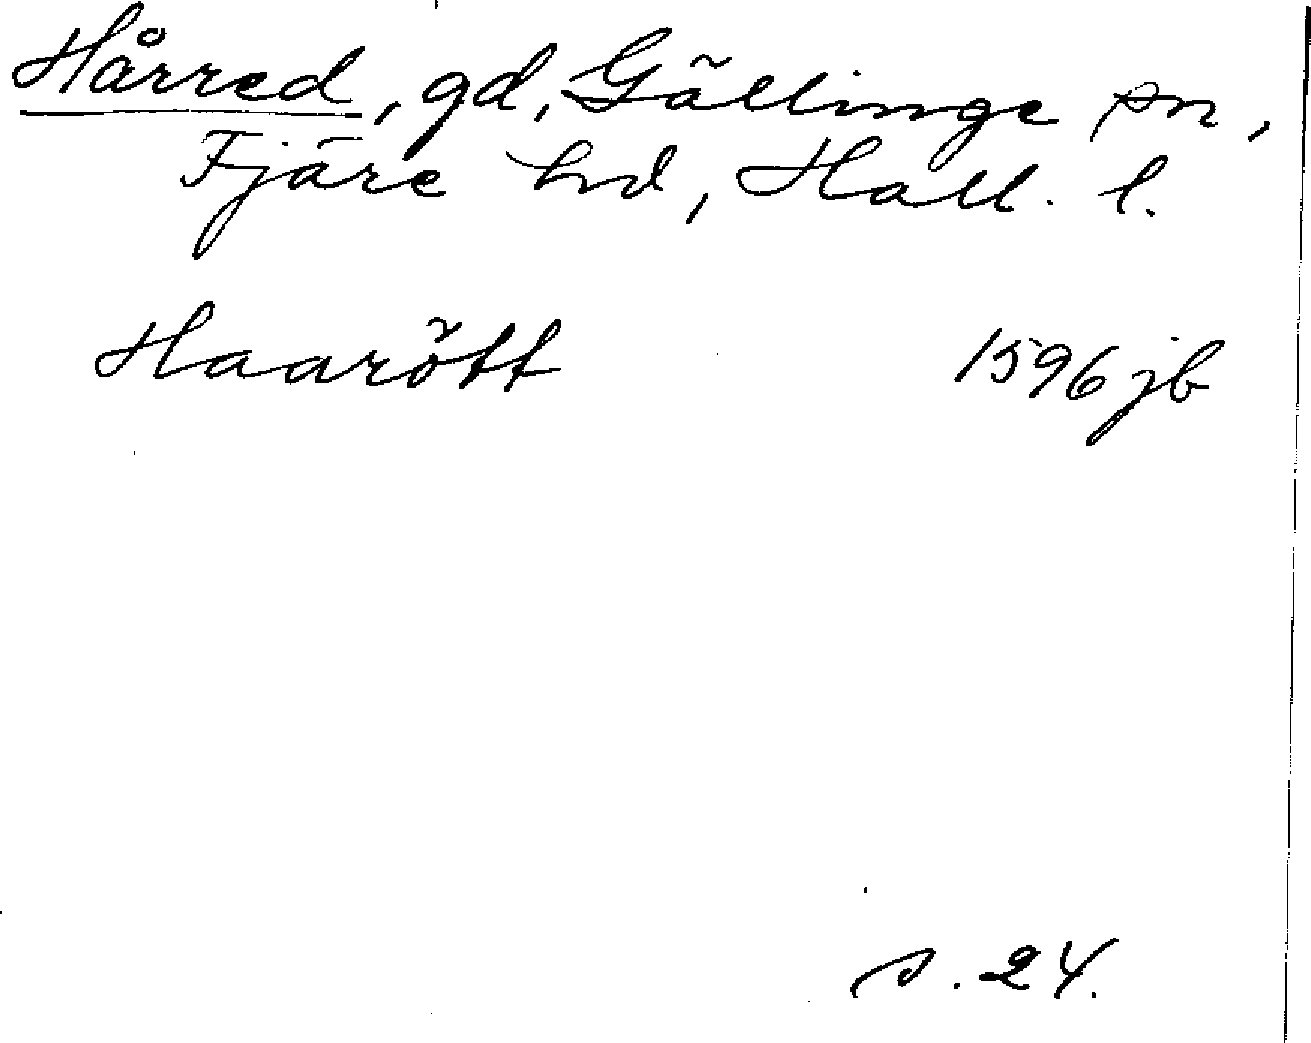 Hårred, gd, Gällinge sn,
Fjäre hd, Hall. l.
Haarött 1596 jb
s. 24.